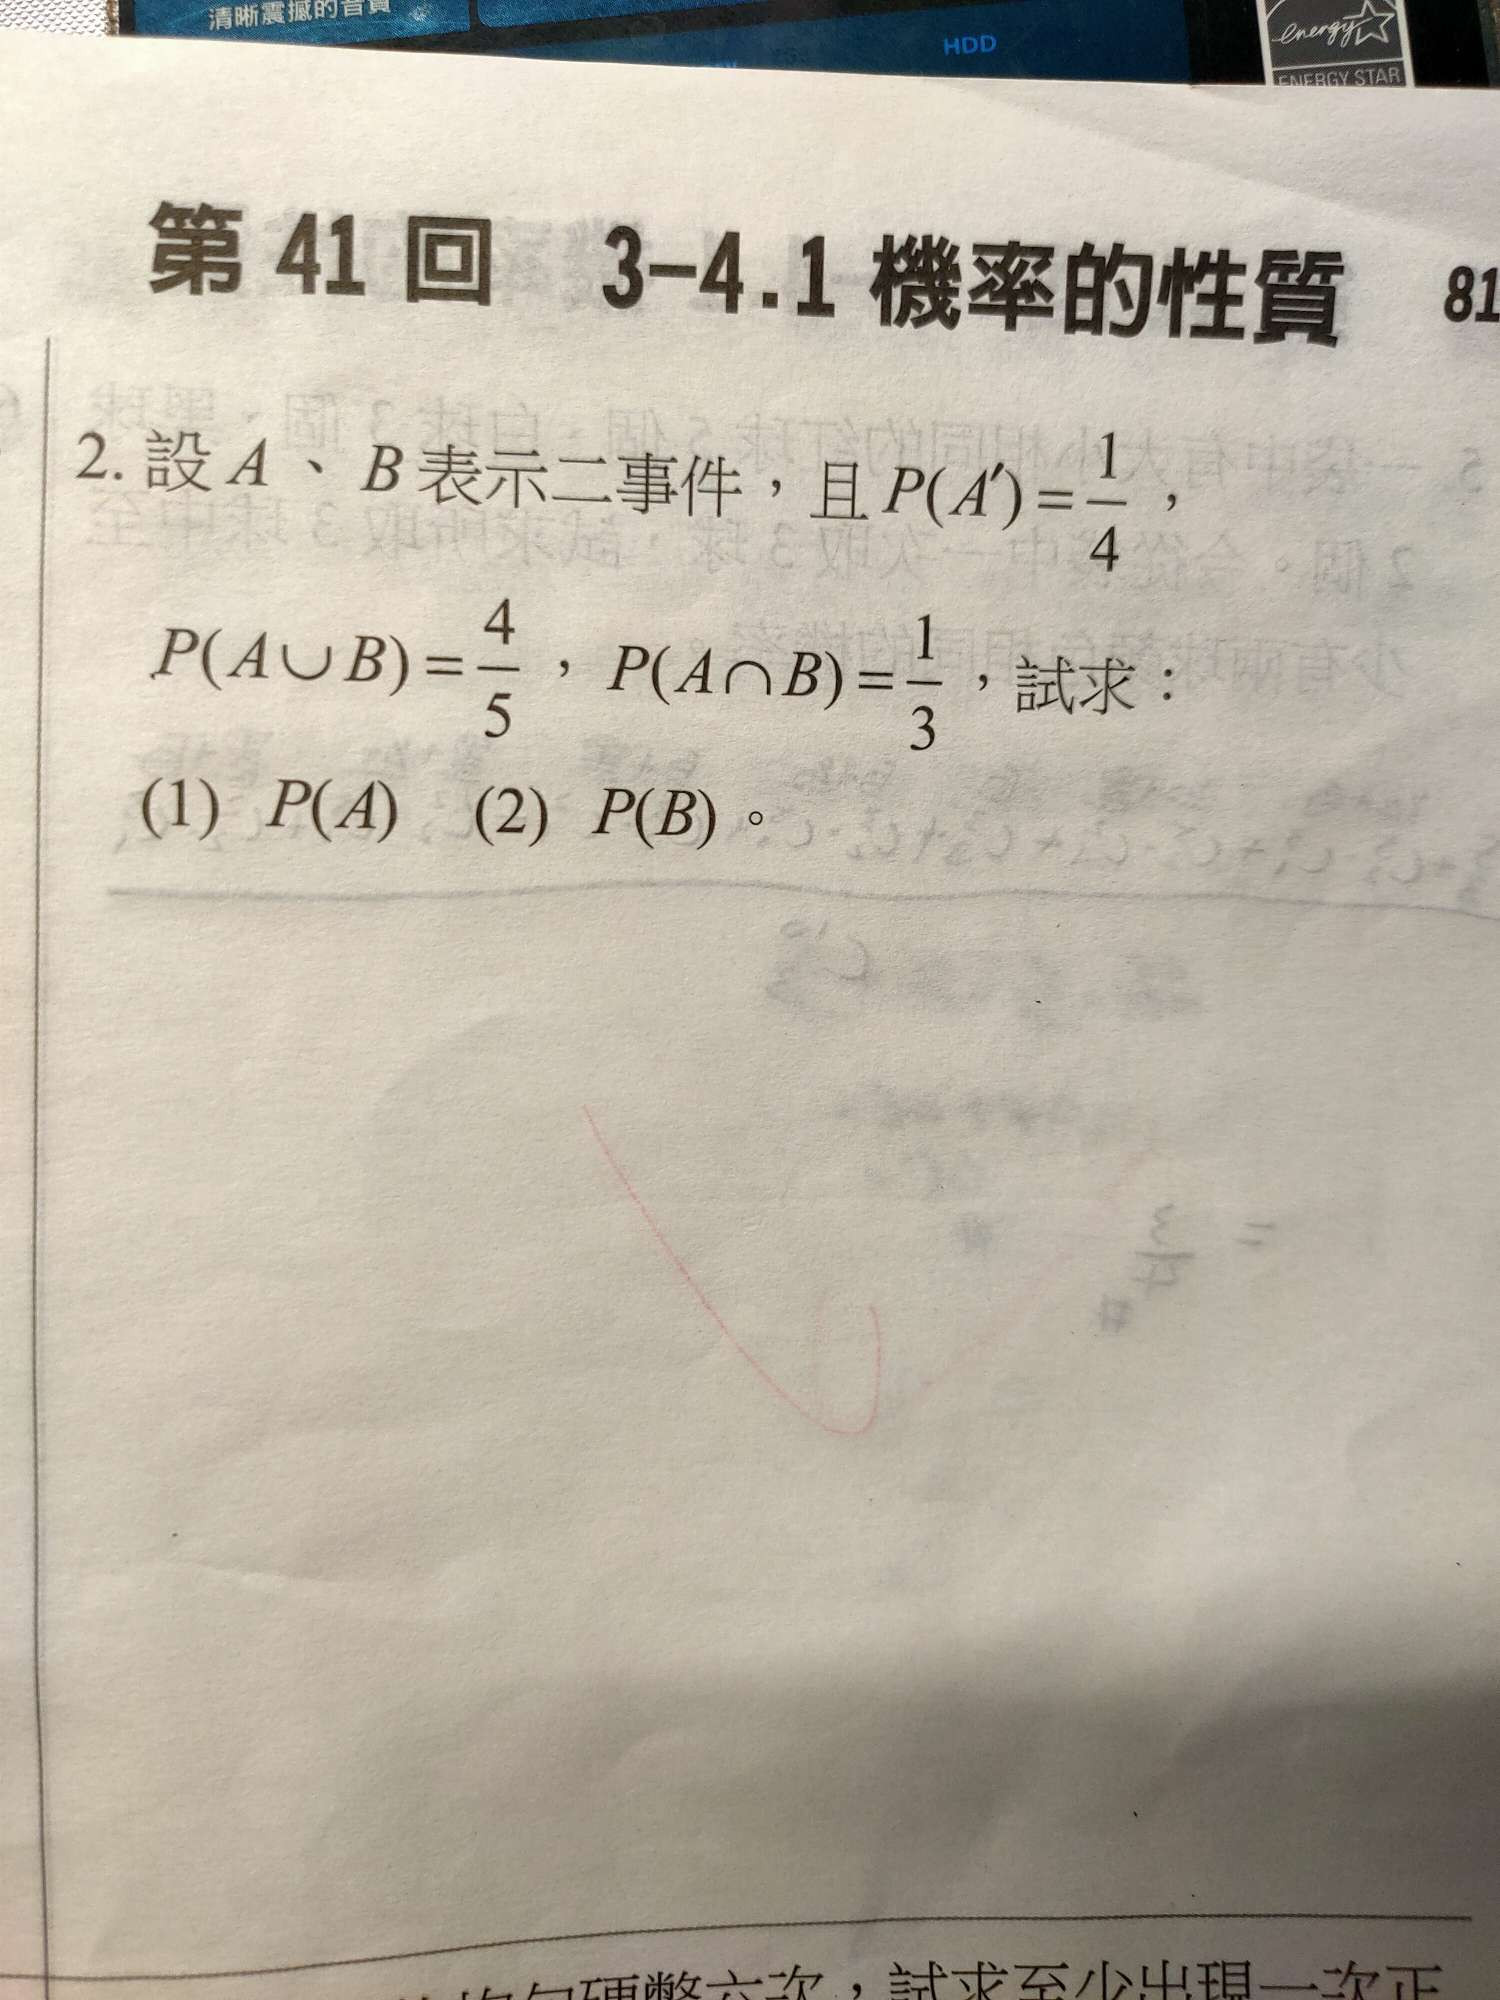 清晰震撼的音質
HDD
energy
ENERGY STAR
第 41 回 3-4.1 機率的性質 81
2. 設 A 、 B 表示二事件，且 P(A′) = 1/4 ，
P(A∪B) = 4/5 ， P(A∩B) = 1/3 ，試求：
(1) P(A) (2) P(B) 。
均勻硬幣六次，試求至少出現一次正